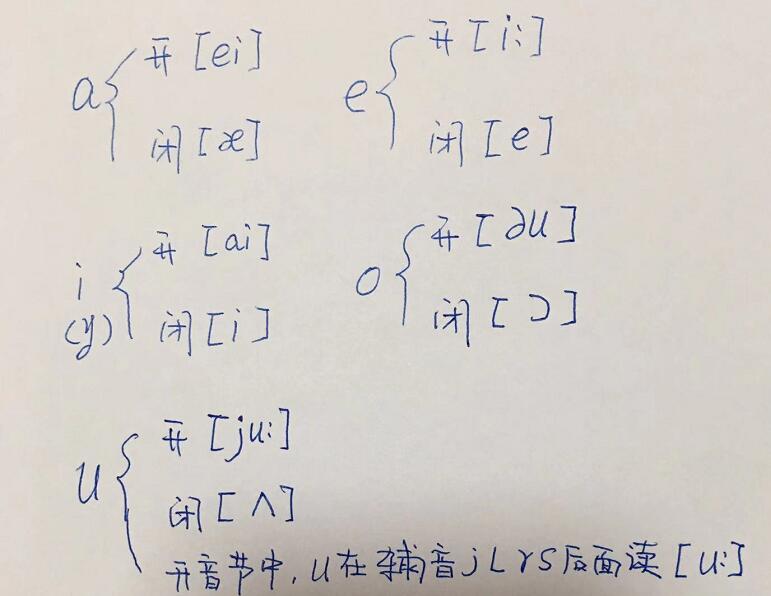 a 开 [ei]
闭 [æ]
e 开 [i:]
闭 [e]
i (y) 开 [ai]
闭 [i]
o 开 [əu]
闭 [ɔ]
u 开 [ju:]
闭 [ʌ]
开音节中, u在辅音j L r s后面读 [u:]